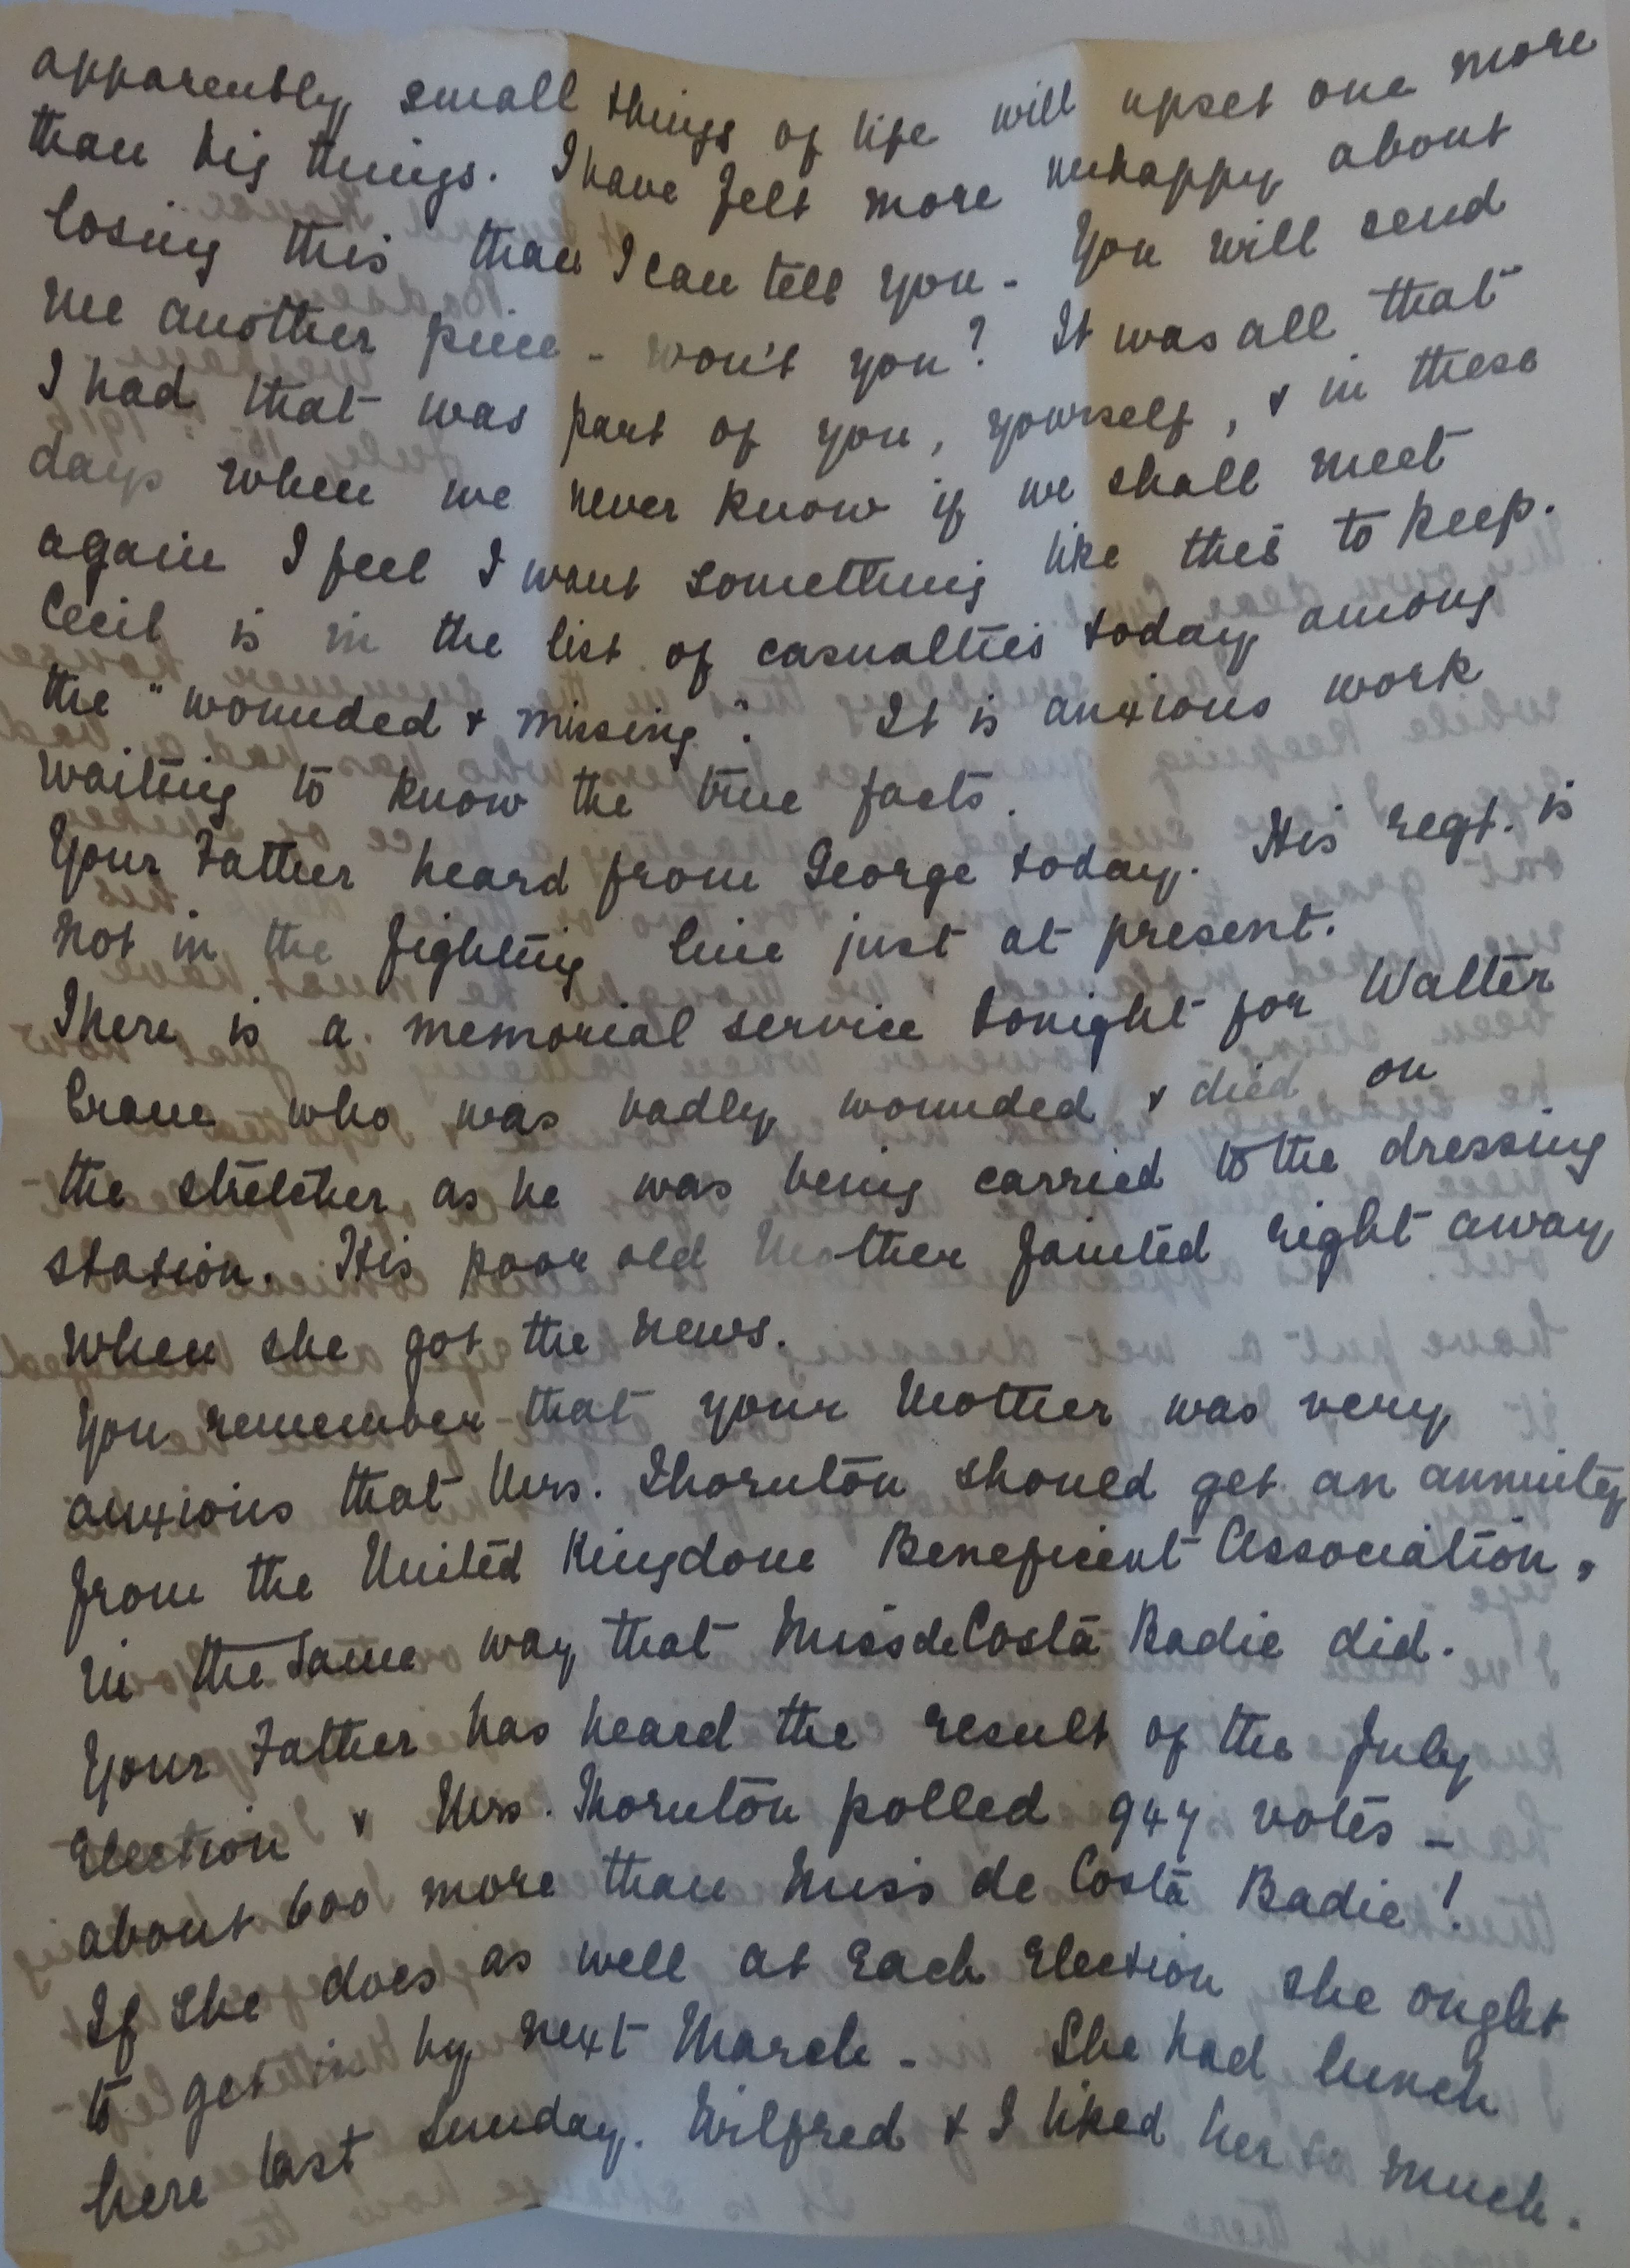 apparently small things of life will upset one more
than big things. I have felt more unhappy about
losing this than I can tell you - You will send
me another piece - won't you? It was all that
I had that was part of you, yourself, & in these
days when we never know if we shall meet
again I feel I want something like this to keep.
Cecil is in the list of casualties today among
the "wounded & missing". It is anxious work
waiting to know the true facts.
Your Father heard from George today. His regt. is
not in the fighting line just at present.
There is a memorial service tonight for Walter
Crane who was badly wounded & died on
the stretcher as he was being carried to the dressing
station. His poor old Mother fainted right away
when she got the news.
You remember that your Mother was very
anxious that Mrs. Thornton should get an annuity
from the United Kingdom Beneficent Association,
in the same way that Miss de Costa Badie did.
Your Father has heard the result of the July
Election & Mrs. Thornton polled 947 votes -
about 600 more than Miss de Costa Badie!
If she does as well at each Election she ought
to get in by next March - She had lunch
here last Sunday. Wilfred & I liked her so much.